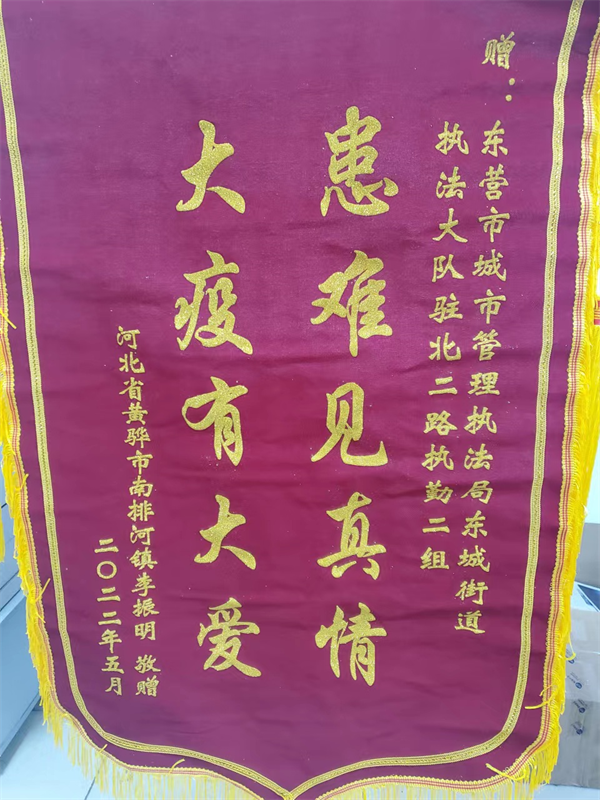 赠：
东营市城市管理执法局东城街道
执法大队驻北二路执勤二组
患难见真情
大疫有大爱
河北省黄骅市南排河镇李振明 敬赠
二〇二二年五月